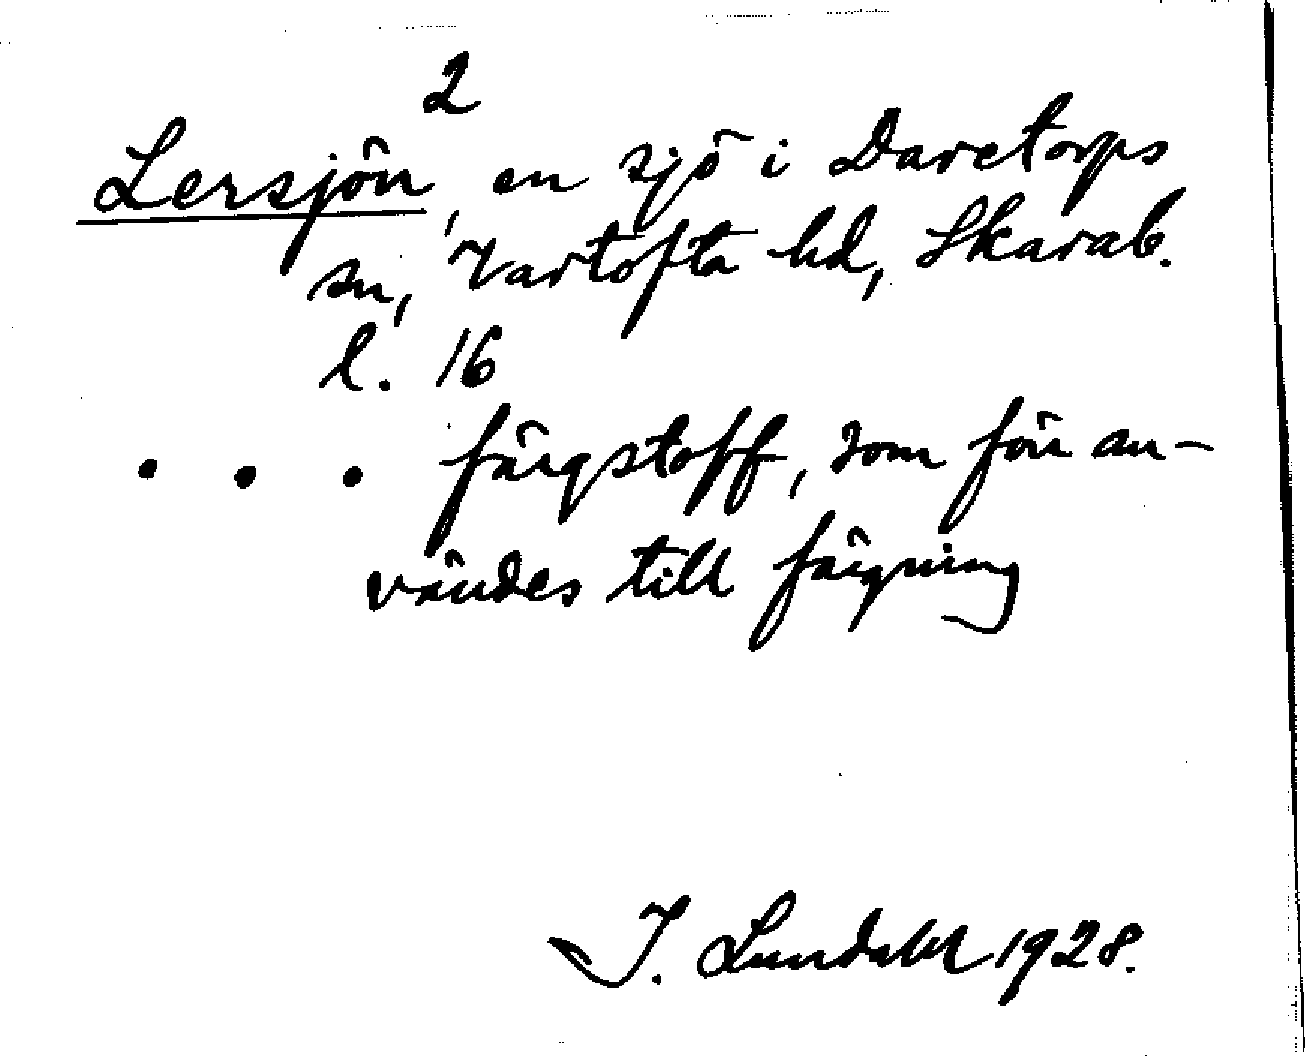 2
Lersjön, en sjö i Daretorps
sn, Vartofta hd, Skarab.
l. 16
. . . färgstoff, som förr an-
vändes till färgning
I. Lundahl 1928.